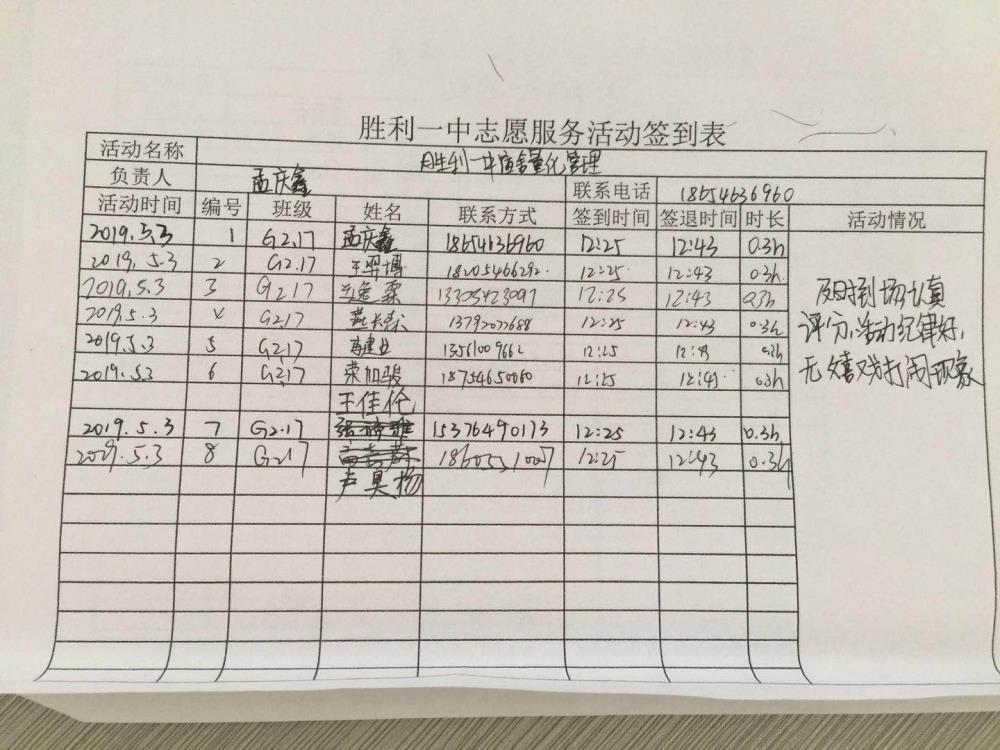 胜利一中志愿服务活动签到表
活动名称 胜利一中宿舍量化管理
负责人 孟庆鑫 联系电话 18654636960
活动时间 编号 班级 姓名 联系方式 签到时间 签退时间 时长 活动情况
2019.5.3 1 G2.17 孟庆鑫 18654636960 12:25 12:43 0.3h
2019.5.3 2 G2.17 18205466292 12:25 12:43 0.3h
2019.5.3 3 G2.17 13305423097 12:25 12:43 0.3h
2019.5.3 4 G2.17 13792077688 12:25 12:43 0.3h
2019.5.3 5 G2.17 13561009662 12:25 12:43 0.3h
2019.5.3 6 G2.17 荣加骏 18754650060 12:25 12:43 0.3h
王佳伦
2019.5.3 7 G2.17 15376490173 12:25 12:43 0.3h
2019.5.3 8 G2.17 12:25 12:43 0.3h
卢昊杨
及时到场认真
评分,活动纪律好,
无嬉戏打闹现象